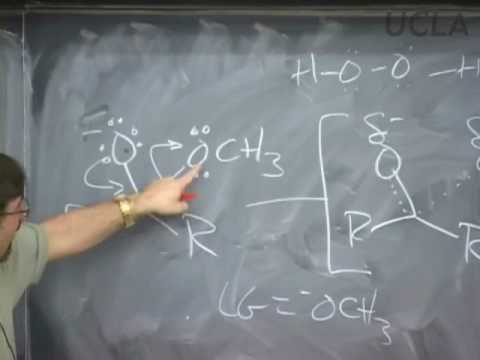 UCLA
H-O-O-H
O OCH3
δ- δ
O
R R R R
LG = -OCH3